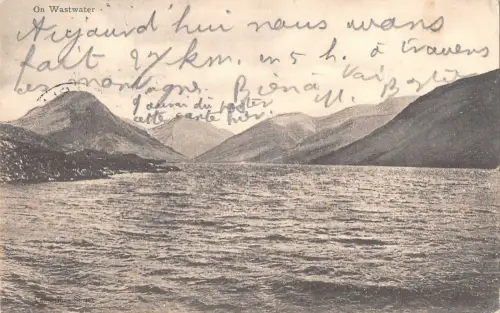 On Wastwater
Aujourd'hui nous avons
fait 27 km. en 5 h. à travers
les montagnes. Bien à Vous
J'aurai du poster
cette carte hier.